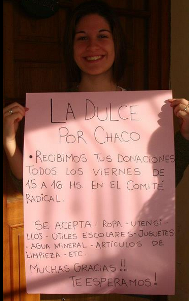 LA DULCE
POR CHACO
• RECIBIMOS TUS DONACIONES
TODOS LOS VIERNES DE
15 A 16 HS. EN EL COMITÉ
RADICAL.
SE ACEPTA - ROPA - UTENSI-
LIOS - ÚTILES ESCOLARES - JUGUETES
- AGUA MINERAL - ARTÍCULOS DE
LIMPIEZA - ETC
MUCHAS GRACIAS!!
TE ESPERAMOS!